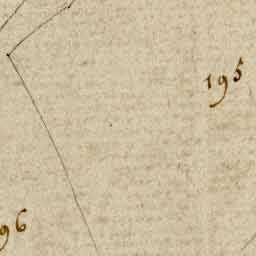 195
96